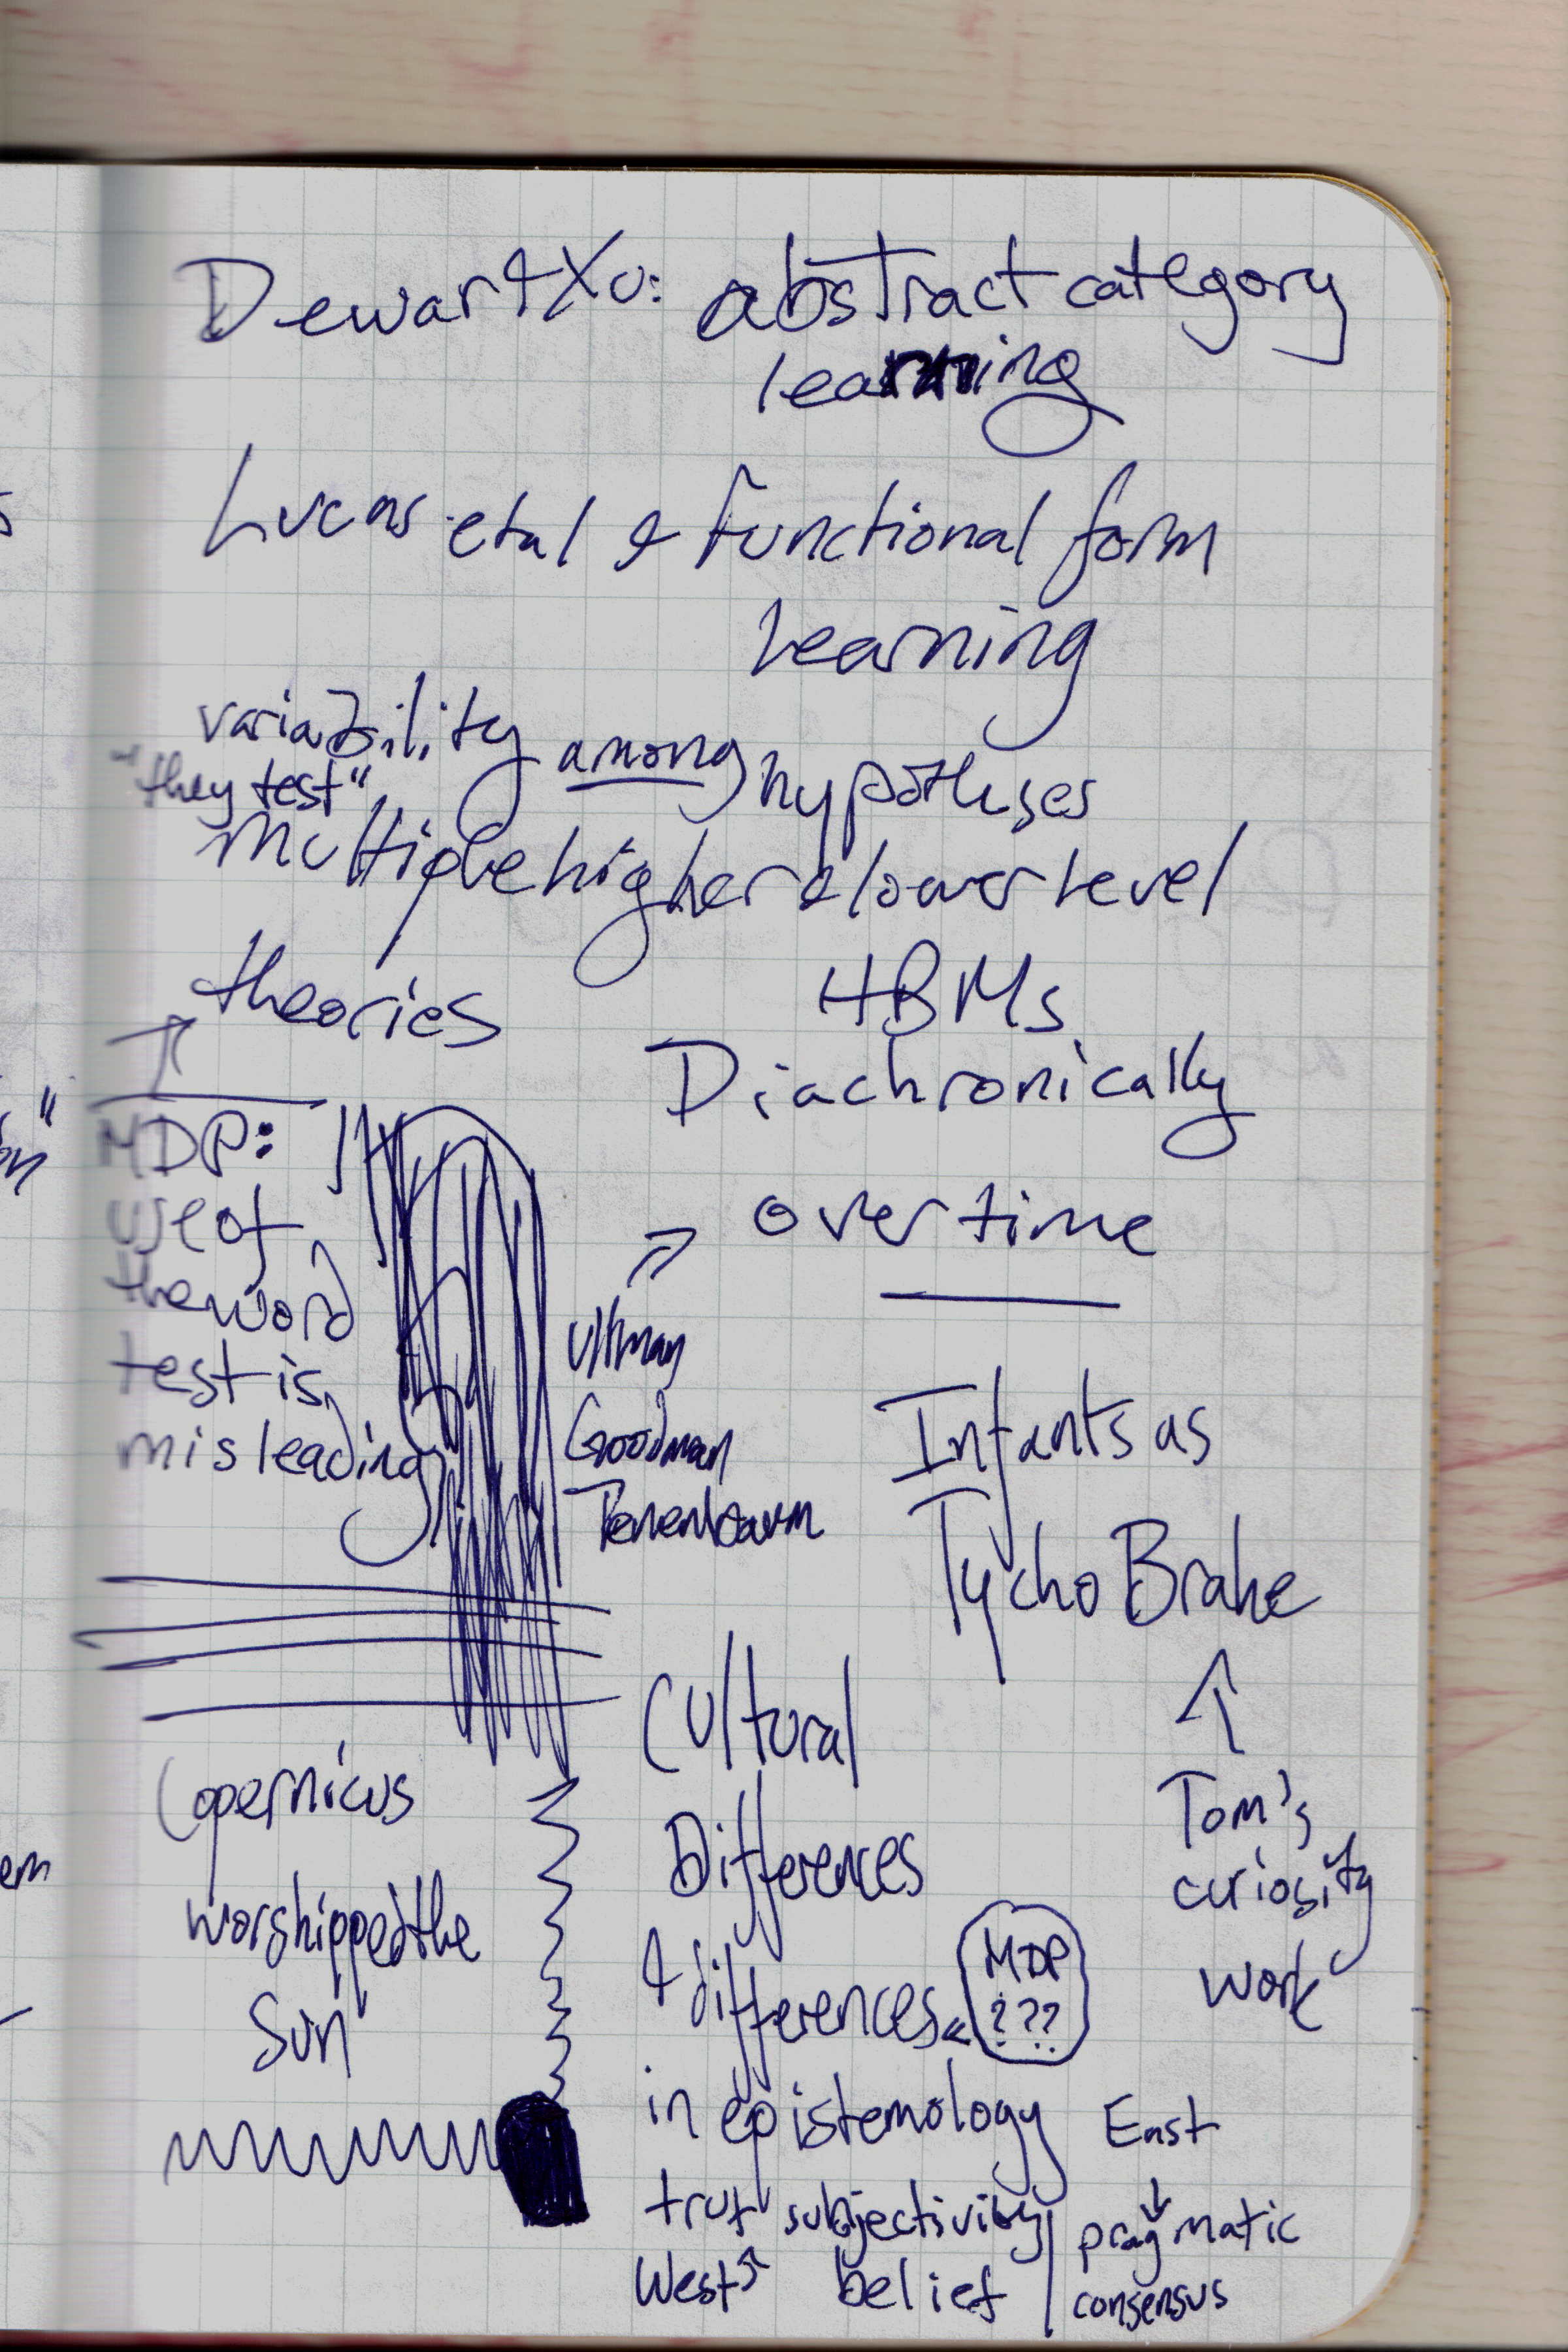 Dewar & Xu: abstract category
learning
Lucas et al & Functional form
Learning
variability among hypotheses
"they test"
Multiple higher & lower level
theories
HBMs
Diachronically
over time
MDP:
use of
the word
test is
misleading
Ullman
Goodman
Tenenbaum
Infants as
Tycho Brahe
Tom's
curiosity
work
Copernicus
worshipped the
Sun
Cultural
Differences
& differences
MDP
???
in epistemology
East
subjectivity
West
belief
pragmatic
consensus